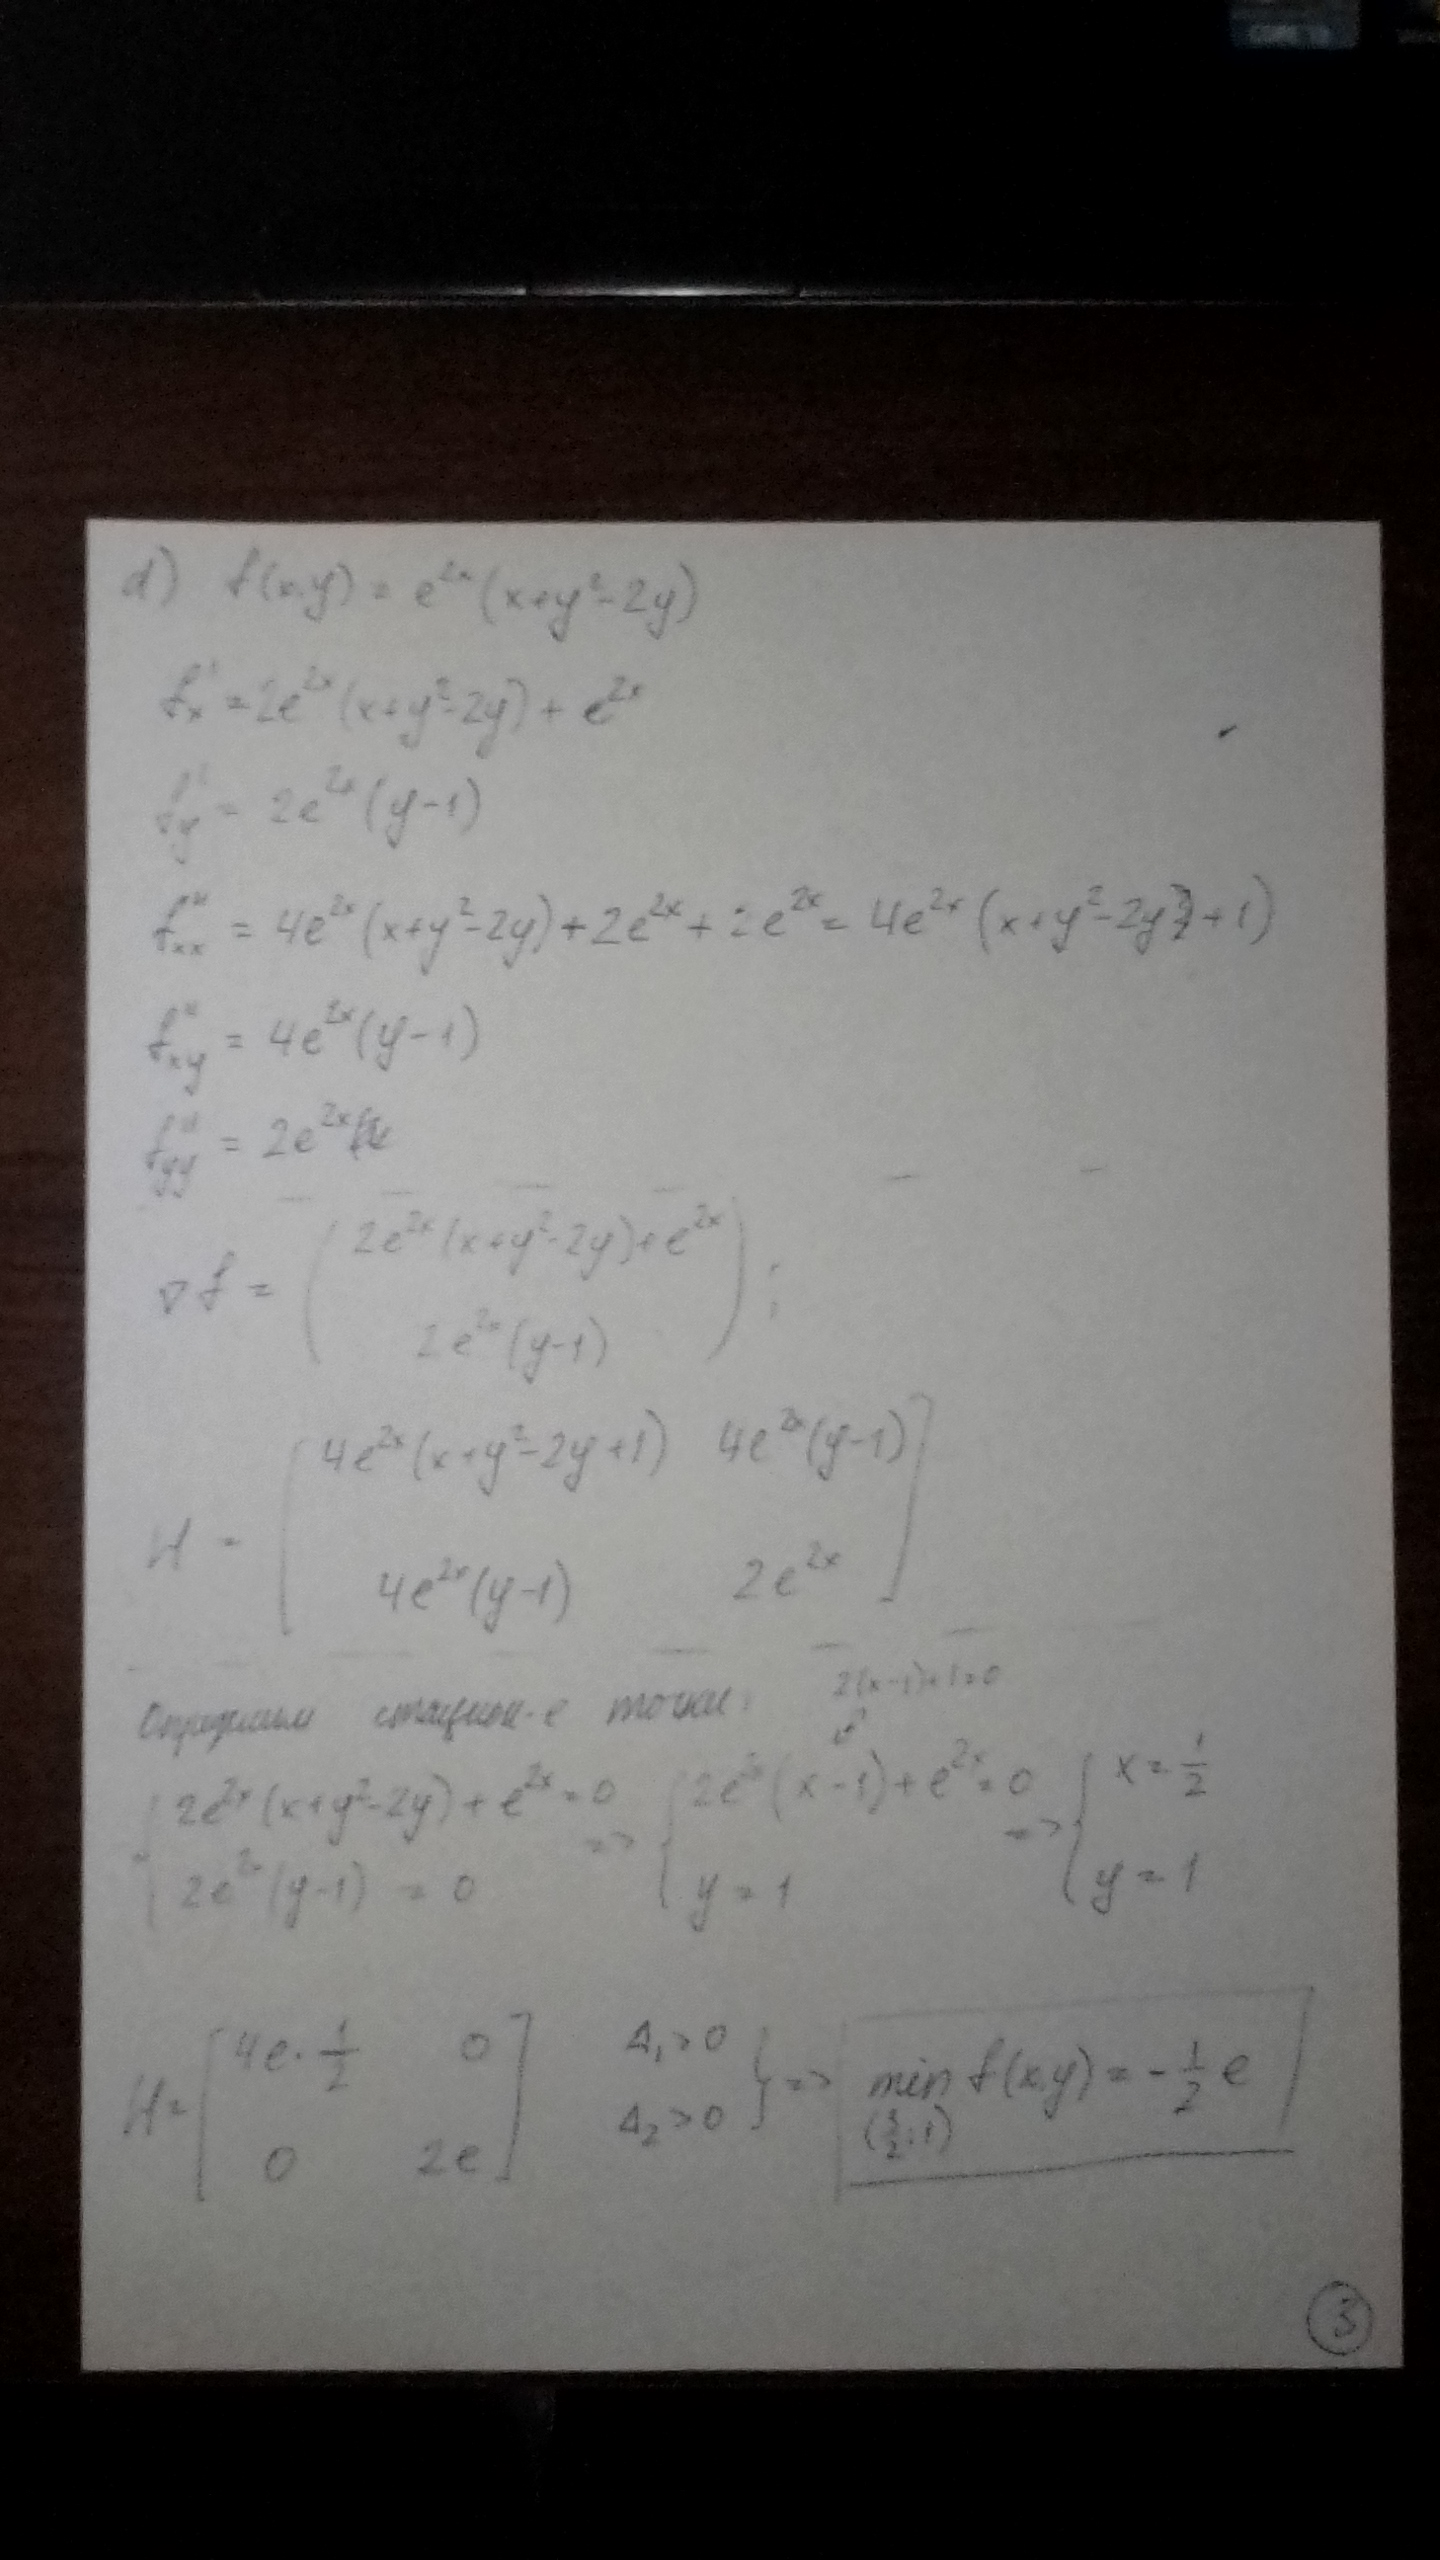 d) f(x,y) = e^{2x}(x+y²-2y)
f'_x = 2e^{2x}(x+y²-2y) + e^{2x}
f'_y = 2e^{2x}(y-1)
f''_{xx} = 4e^{2x}(x+y²-2y) + 2e^{2x} + 2e^{2x} = 4e^{2x}(x+y²-2y+1)
f''_{xy} = 4e^{2x}(y-1)
f''_{yy} = 2e^{2x}
∇f = ( 2e^{2x}(x+y²-2y)+e^{2x}
2e^{2x}(y-1) ) ;
H = [ 4e^{2x}(x+y²-2y+1) 4e^{2x}(y-1)
4e^{2x}(y-1) 2e^{2x} ]
Определим стацион-е точки:
2(x-1)+1=0
{ 2e^{2x}(x+y²-2y)+e^{2x}=0 => { 2e^{2x}(x-1)+e^{2x}=0 => { x = 1/2
2e^{2x}(y-1) = 0 y = 1 y = 1
H = [ 4e·1/2 0 Δ₁>0 } => min f(x,y) = -1/2 e
0 2e ] Δ₂>0
3